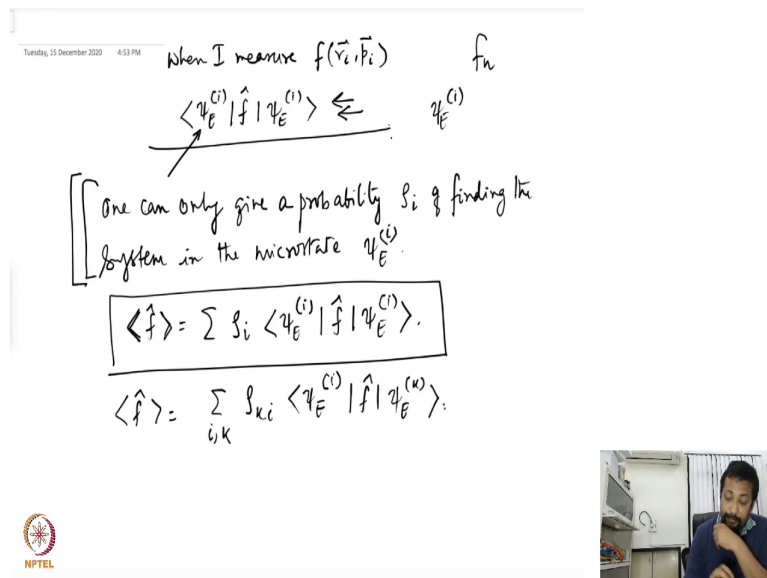 Tuesday, 15 December 2020 4:53 PM
When I measure f(r⃗ᵢ, p⃗ᵢ) fₙ
⟨ψ_E^(i)|f̂|ψ_E^(i)⟩ ⇐ ψ_E^(i)
One can only give a probability ρᵢ of finding the
System in the microstate ψ_E^(i).
⟨f̂⟩ = Σ ρᵢ ⟨ψ_E^(i)|f̂|ψ_E^(i)⟩.
⟨f̂⟩ = Σ_{i,k} ρ_{ki} ⟨ψ_E^(i)|f̂|ψ_E^(k)⟩.
NPTEL